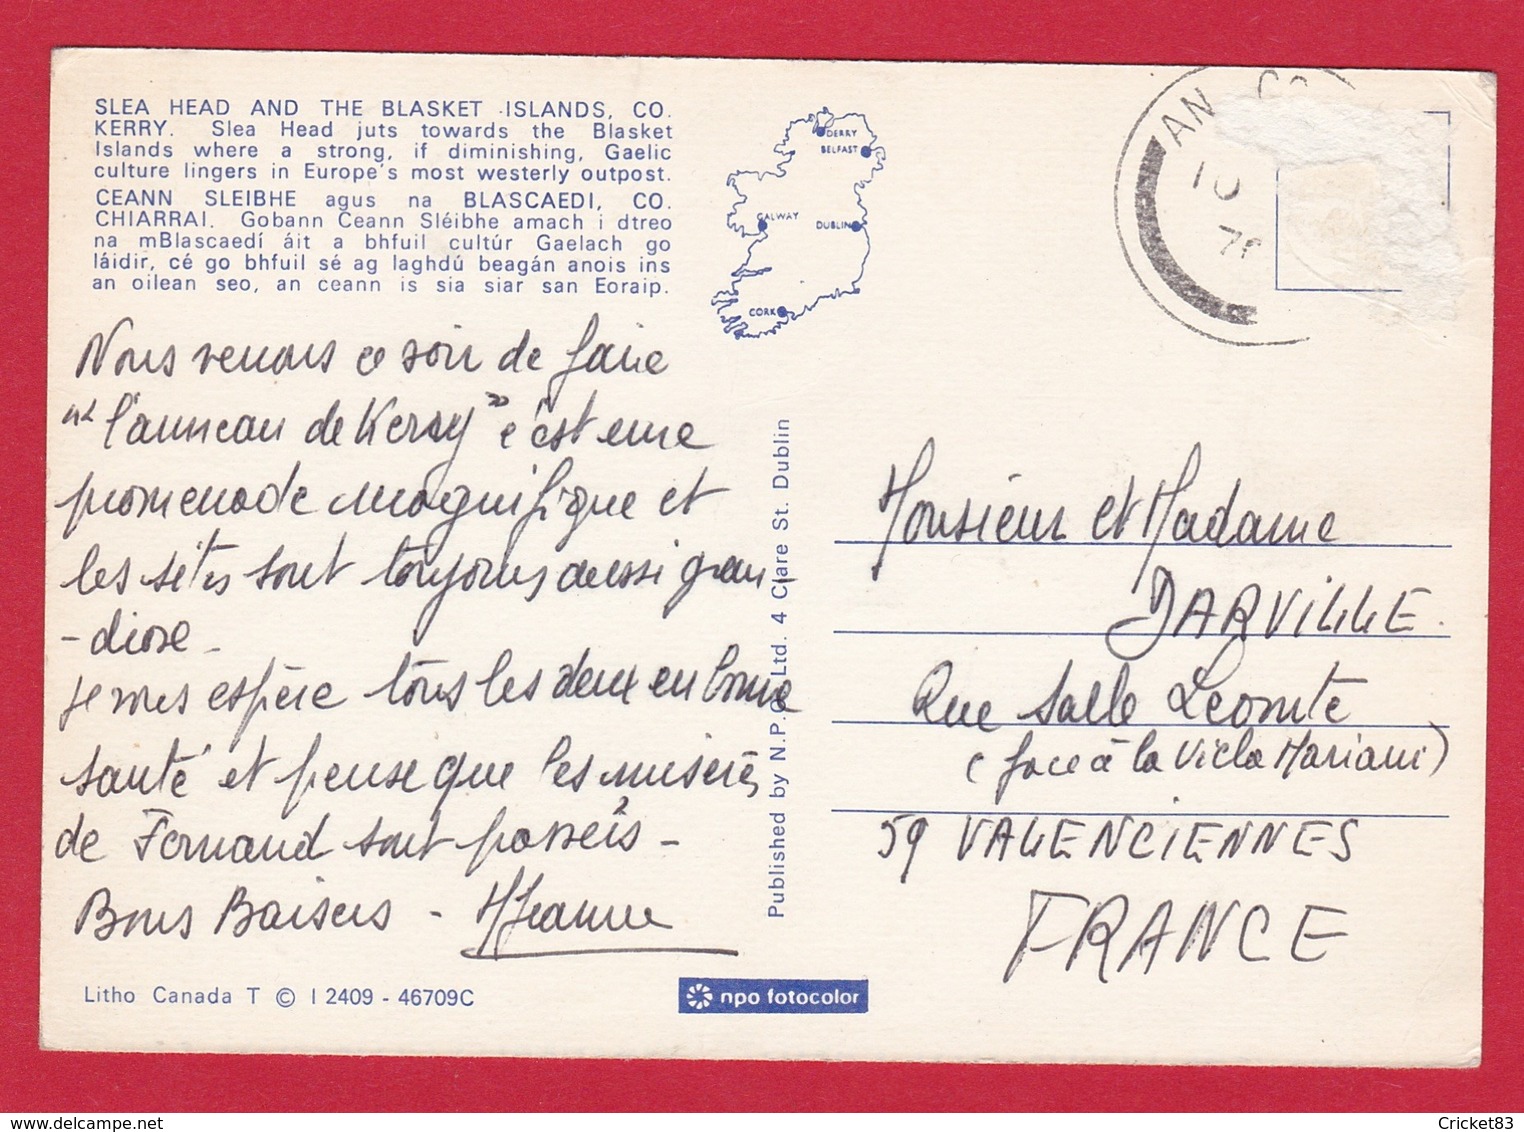 SLEA HEAD AND THE BLASKET ISLANDS, CO.
KERRY. Slea Head juts towards the Blasket
Islands where a strong, if diminishing, Gaelic
culture lingers in Europe's most westerly outpost.
CEANN SLEIBHE agus na BLASCAEDI, CO.
CHIARRAI. Gobann Ceann Sléibhe amach i dtreo
na mBlascaedí áit a bhfuil cultúr Gaelach go
láidir, cé go bhfuil sé ag laghdú beagán anois ins
an oilean seo, an ceann is sia siar san Eoraip.
DERRY
BELFAST
GALWAY
DUBLIN
CORK
AN CO
10
Nous venons ce soir de faire
l'anneau de Kerry" c'est une
promenade magnifique et
les sites sont toujours aussi gran-
-diose -
Je vous espère tous les deux en bonne
santé et pense que les misères
de Fernand sont passées -
Bons Baisers - MJeanne
Published by N.P.O. Ltd. 4 Clare St. Dublin
Monsieur et Madame
DARVILLE.
Rue Salle Lecomte
(face à la Villa Mariani)
59 VALENCIENNES
FRANCE
Litho Canada T © I 2409 - 46709C
npo fotocolor
Cricket83